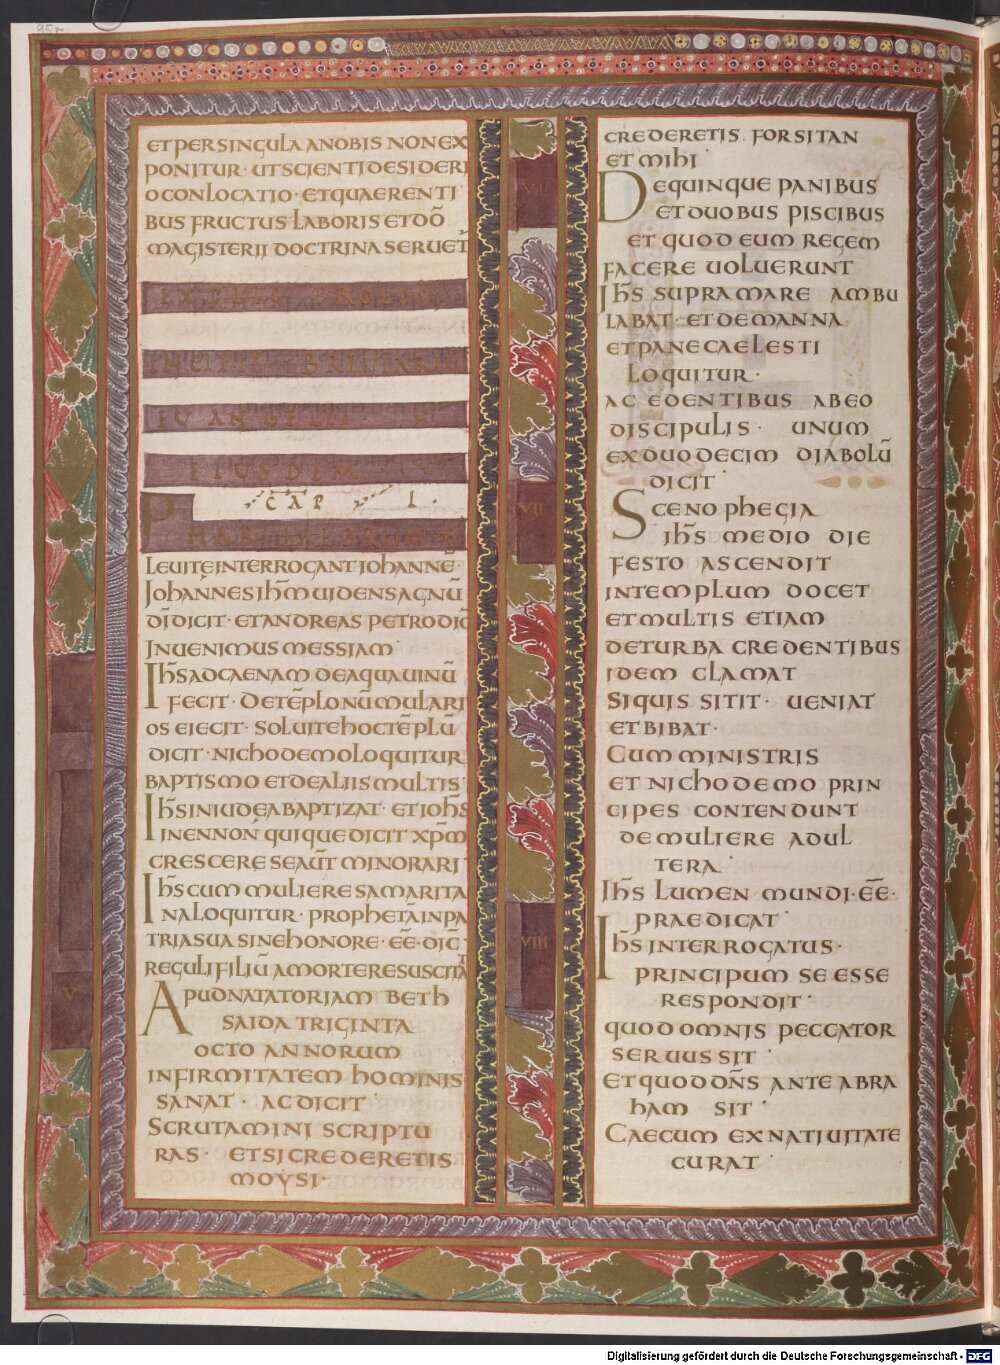 95r
ET PER SINGULA A NOBIS NON EX
PONITUR · UT SCIENTI DESIDERI
O CONLOCATIO · ET QUAERENTI
BUS FRUCTUS LABORIS ET DŌ
MAGISTERII DOCTRINA SERUET̄
EXPLICIT
INCIPIT BREUIARIUM
EUANGELII
EIUSDEM
CAP I ·
PHARISAEORUM
LEUITE INTERROGANT IOHANNĒ ·
IOHANNES IHM̄ UIDENS AGNŪ
DĪ DICIT · ET ANDREAS PETRO DIC̄
INUENIMUS MESSIAM
IHS̄ AD CAENAM DE AQUA UINŪ
FECIT · DE TĒPLO NŪMULARI
OS EIECIT · SOLUITE HOC TĒPLŪ
DICIT · NICHODEMO LOQUITUR
BAPTISMO ET DE ALIIS MULTIS ·
IHS̄ IN IUDEA BAPTIZAT · ET IOHS̄
IN ENNON · QUIQUE DICIT XPM̄
CRESCERE SE AUT̄ MINORARI
IHS̄ CUM MULIERE SAMARITA
NA LOQUITUR · PROPHETĀ IN PA
TRIA SUA SINE HONORE · EE̅ · DIC̄ ·
REGULI FILIŪ A MORTE RESUSCITAT
APUD NATATORIAM BETH
SAIDA TRIGINTA
OCTO ANNORUM
INFIRMITATEM HOMINIS
SANAT · AC DICIT ·
SCRUTAMINI SCRIPTU
RAS · ET SI CREDERETIS
MOYSI ·
V
VI
VII
VIII
CREDERETIS · FORSITAN
ET MIHI ·
DE QUINQUE PANIBUS
ET DUOBUS PISCIBUS
ET QUOD EUM REGEM
FACERE UOLUERUNT
IHS̄ SUPRA MARE AMBU
LABAT · ET DE MANNA
ET PANE CAELESTI
LOQUITUR ·
AC EDENTIBUS AB EO
DISCIPULIS · UNUM
EX DUODECIM DIABOLŪ
DICIT ·
SCENOPHEGIA
IHS̄ MEDIO DIE
FESTO ASCENDIT
IN TEMPLUM DOCET
ET MULTIS ETIAM
DE TURBA CREDENTIBUS
IDEM CLAMAT
SI QUIS SITIT · UENIAT
ET BIBAT ·
CUM MINISTRIS
ET NICHODEMO PRIN
CIPES CONTENDUNT
DE MULIERE ADUL
TERA ·
IHS̄ LUMEN MUNDI · EE̅ ·
PRAEDICAT ·
IHS̄ INTERROGATUS ·
PRINCIPUM SE ESSE
RESPONDIT ·
QUOD OMNIS PECCATOR
SERUUS SIT ·
ET QUOD DN̄S ANTE ABRA
HAM SIT ·
CAECUM EX NATIUITATE
CURAT ·
Digitalisierung gefördert durch die Deutsche Forschungsgemeinschaft - DFG